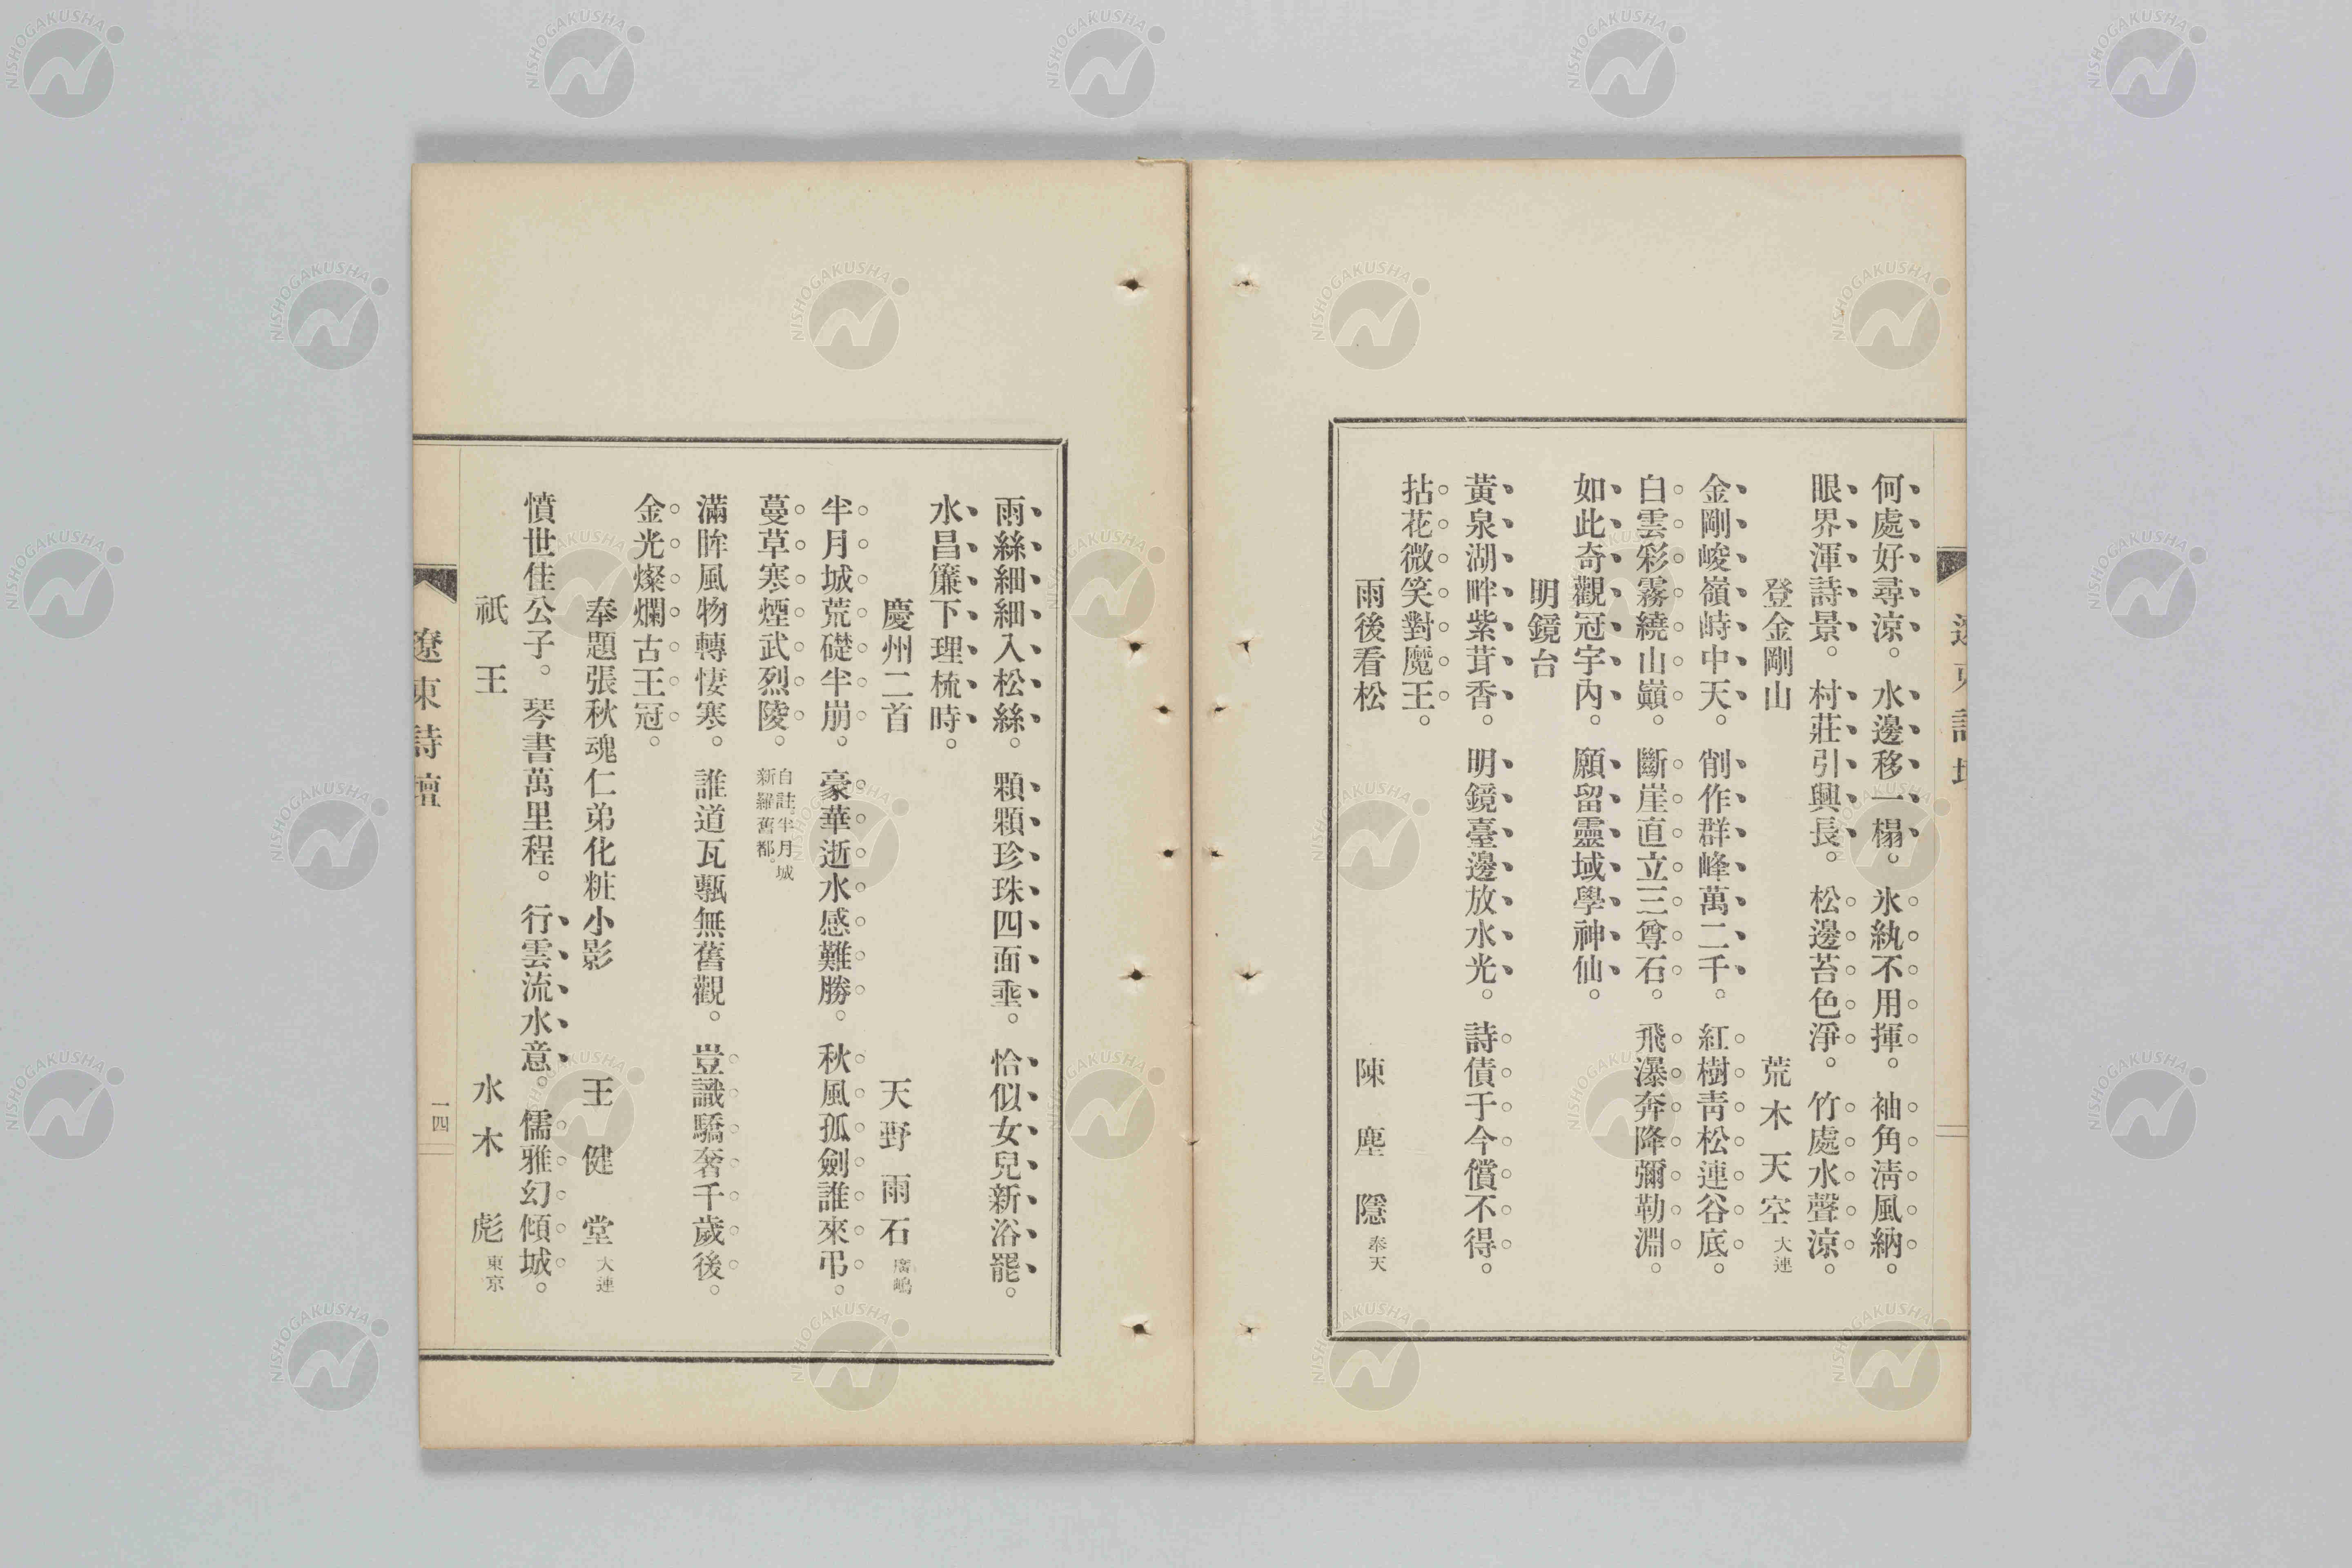 何處好尋涼。水邊移一榻。氷紈不用揮。袖角淸風納。
眼界渾詩景。村莊引興長。松邊苔色淨。竹處水聲涼。
登金剛山　荒木天空 大連
金剛峻嶺峙中天。削作群峰萬二千。紅樹靑松連谷底。
白雲彩霧繞山巓。斷崖直立三尊石。飛瀑奔降彌勒淵。
如此奇觀冠宇內。願留靈域學神仙。
明鏡台
黃泉湖畔紫茸香。明鏡臺邊放水光。詩債于今償不得。
拈花微笑對魔王。
雨後看松　陳塵隱 奉天
雨絲細細入松絲。顆顆珍珠四面垂。恰似女兒新浴罷。
水晶簾下理梳時。
慶州二首　天野雨石 廣嶋
半月城荒礎半崩。豪華逝水感難勝。秋風孤劍誰來弔。
蔓草寒煙武烈陵。自註。半月城
新羅舊都。
滿眸風物轉悽寒。誰道瓦甎無舊觀。豈識驕奢千歲後。
金光燦爛古王冠。
奉題張秋魂仁弟化粧小影　王健堂 大連
憤世佳公子。琴書萬里程。行雲流水意。儒雅幻傾城。
祇王　水木彪 東京
遼東詩壇
一四
NISHOGAKUSHA